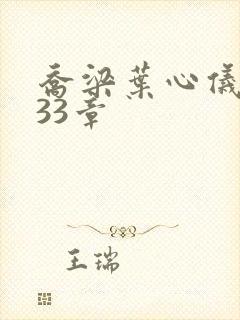 乔梁叶心仪
33章
王瑞